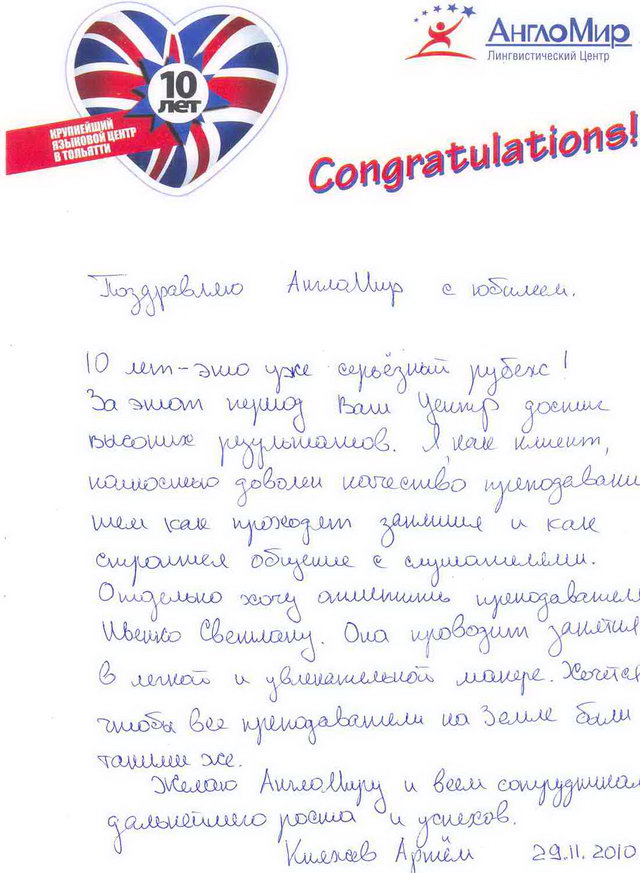 АнглоМир
Лингвистический Центр
10
лет
КРУПНЕЙШИЙ
ЯЗЫКОВОЙ ЦЕНТР
В ТОЛЬЯТТИ
Congratulations!
Поздравляю АнглоМир с юбилеем.
10 лет - это уже серьёзный рубеж!
За этот период Ваш Центр достиг
высоких результатов. Я, как клиент,
полностью доволен качество преподавани
тем как проходят занятия и как
строится общение с слушателями.
Отдельно хочу отметить преподавател
Ивенко Светлану. Она проводит занятия
в легкой и увлекательной манере. Хочется
чтобы все преподаватели на Земле были
такими же.
Желаю АнглоМиру и всем сотрудникам
дальнейшего роста и успехов.
Артём 29.11.2010